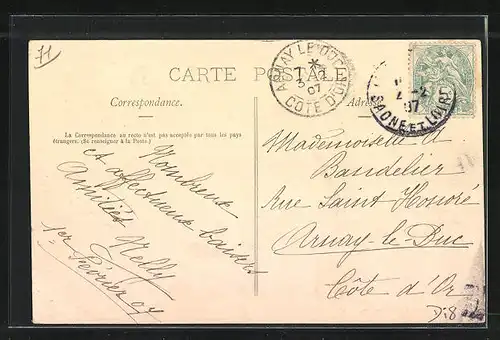 71
CARTE POSTALE
ARNAY LE DUC
7 *
3 -2
07
COTE D'OR
2 -2
07
SAONE ET LOIRE
Correspondance.
Adresse
La Correspondance au recto n'est pas acceptée par tous les pays
étrangers. (Se renseigner à la Poste.)
Nombreux
et affectueux baisers
Amitiés Nelly
1er Février 07
Mademoiselle A
Bandelier
Rue Saint Honoré
Arnay-le-Duc
Côte d'Or